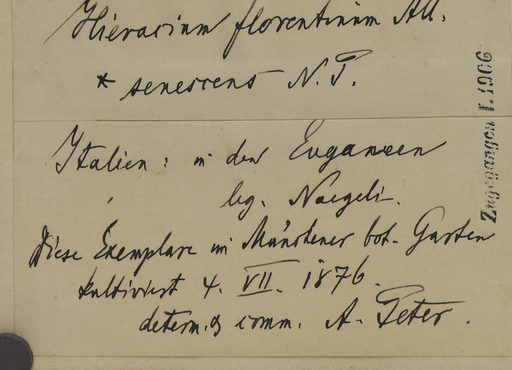 Hieracium florentinum All.
* senescens N. P.
Italien: in den Euganeen
leg. Naegeli.
Diese Exemplare im Münchener bot. Garten
kultiviert 4. VII. 1876.
determ. & comm. A. Peter.
Zugegangen I. 1906